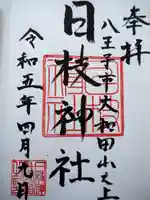 奉拝
八王子市大和田山之上
日枝神社
令和五年四月九日